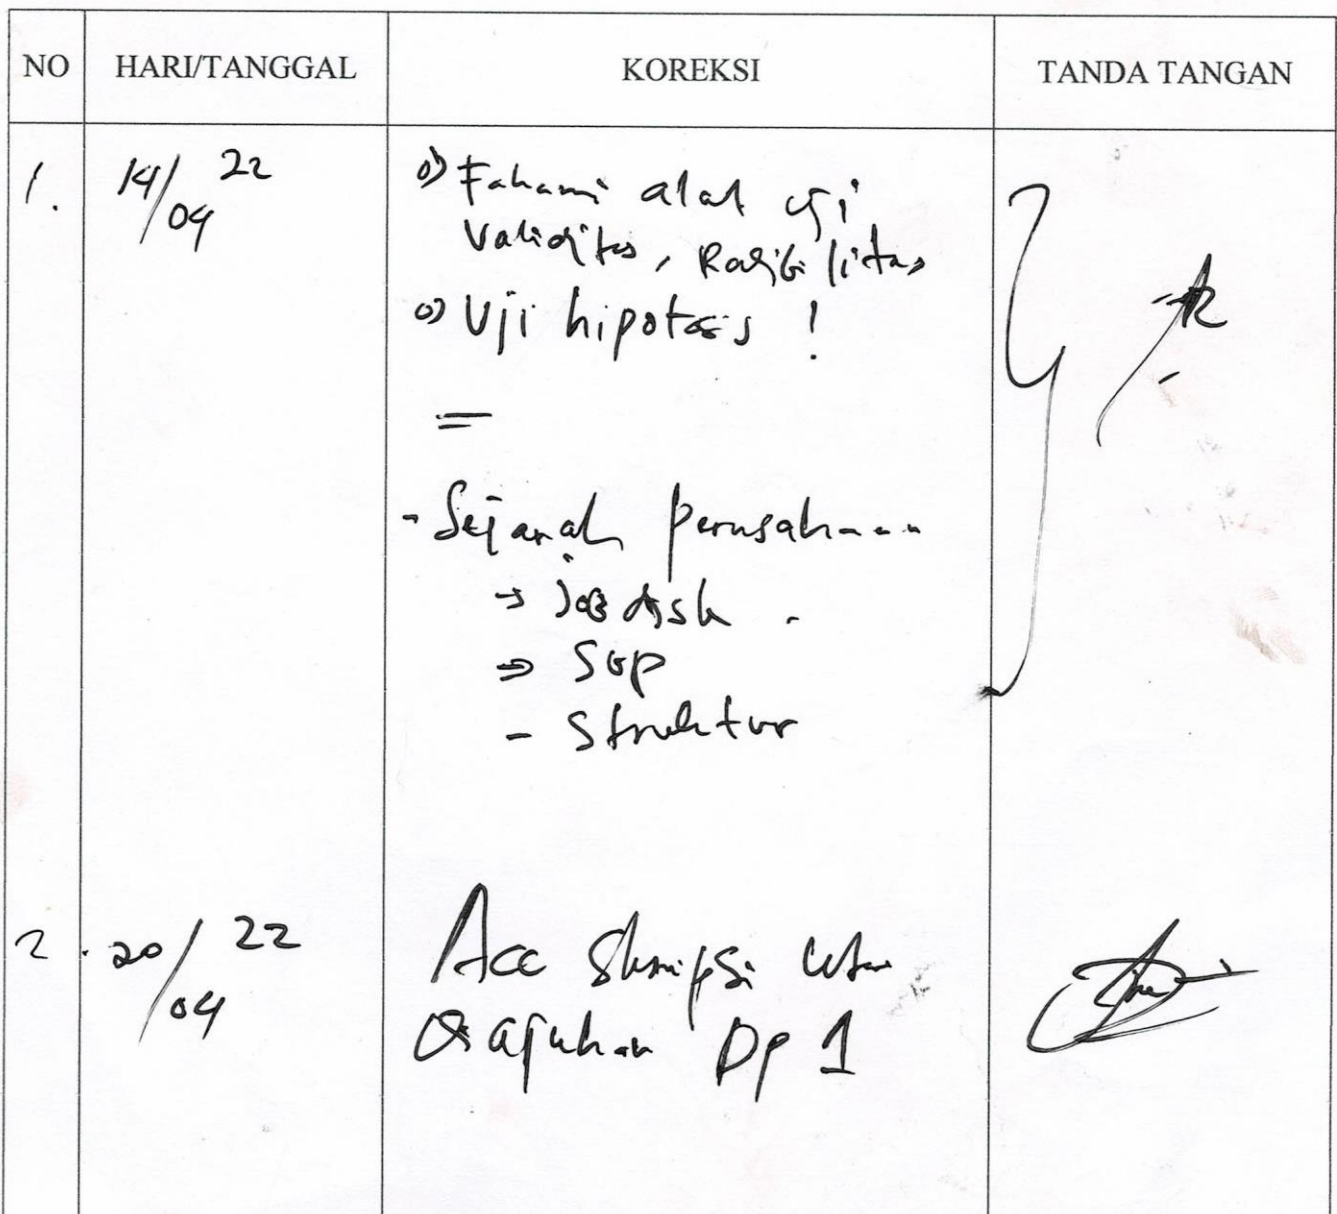 NO HARI/TANGGAL KOREKSI TANDA TANGAN
1. 14/04 22 o) Fahami alat uji
Validitas, Realibilitas
o) Uji hipotesis !
=
- Sejarah perusahaan
→ job desk .
⇒ SOP
- Struktur
2. 20/04 22 Acc Skripsi untuk
diajukan Dp 1